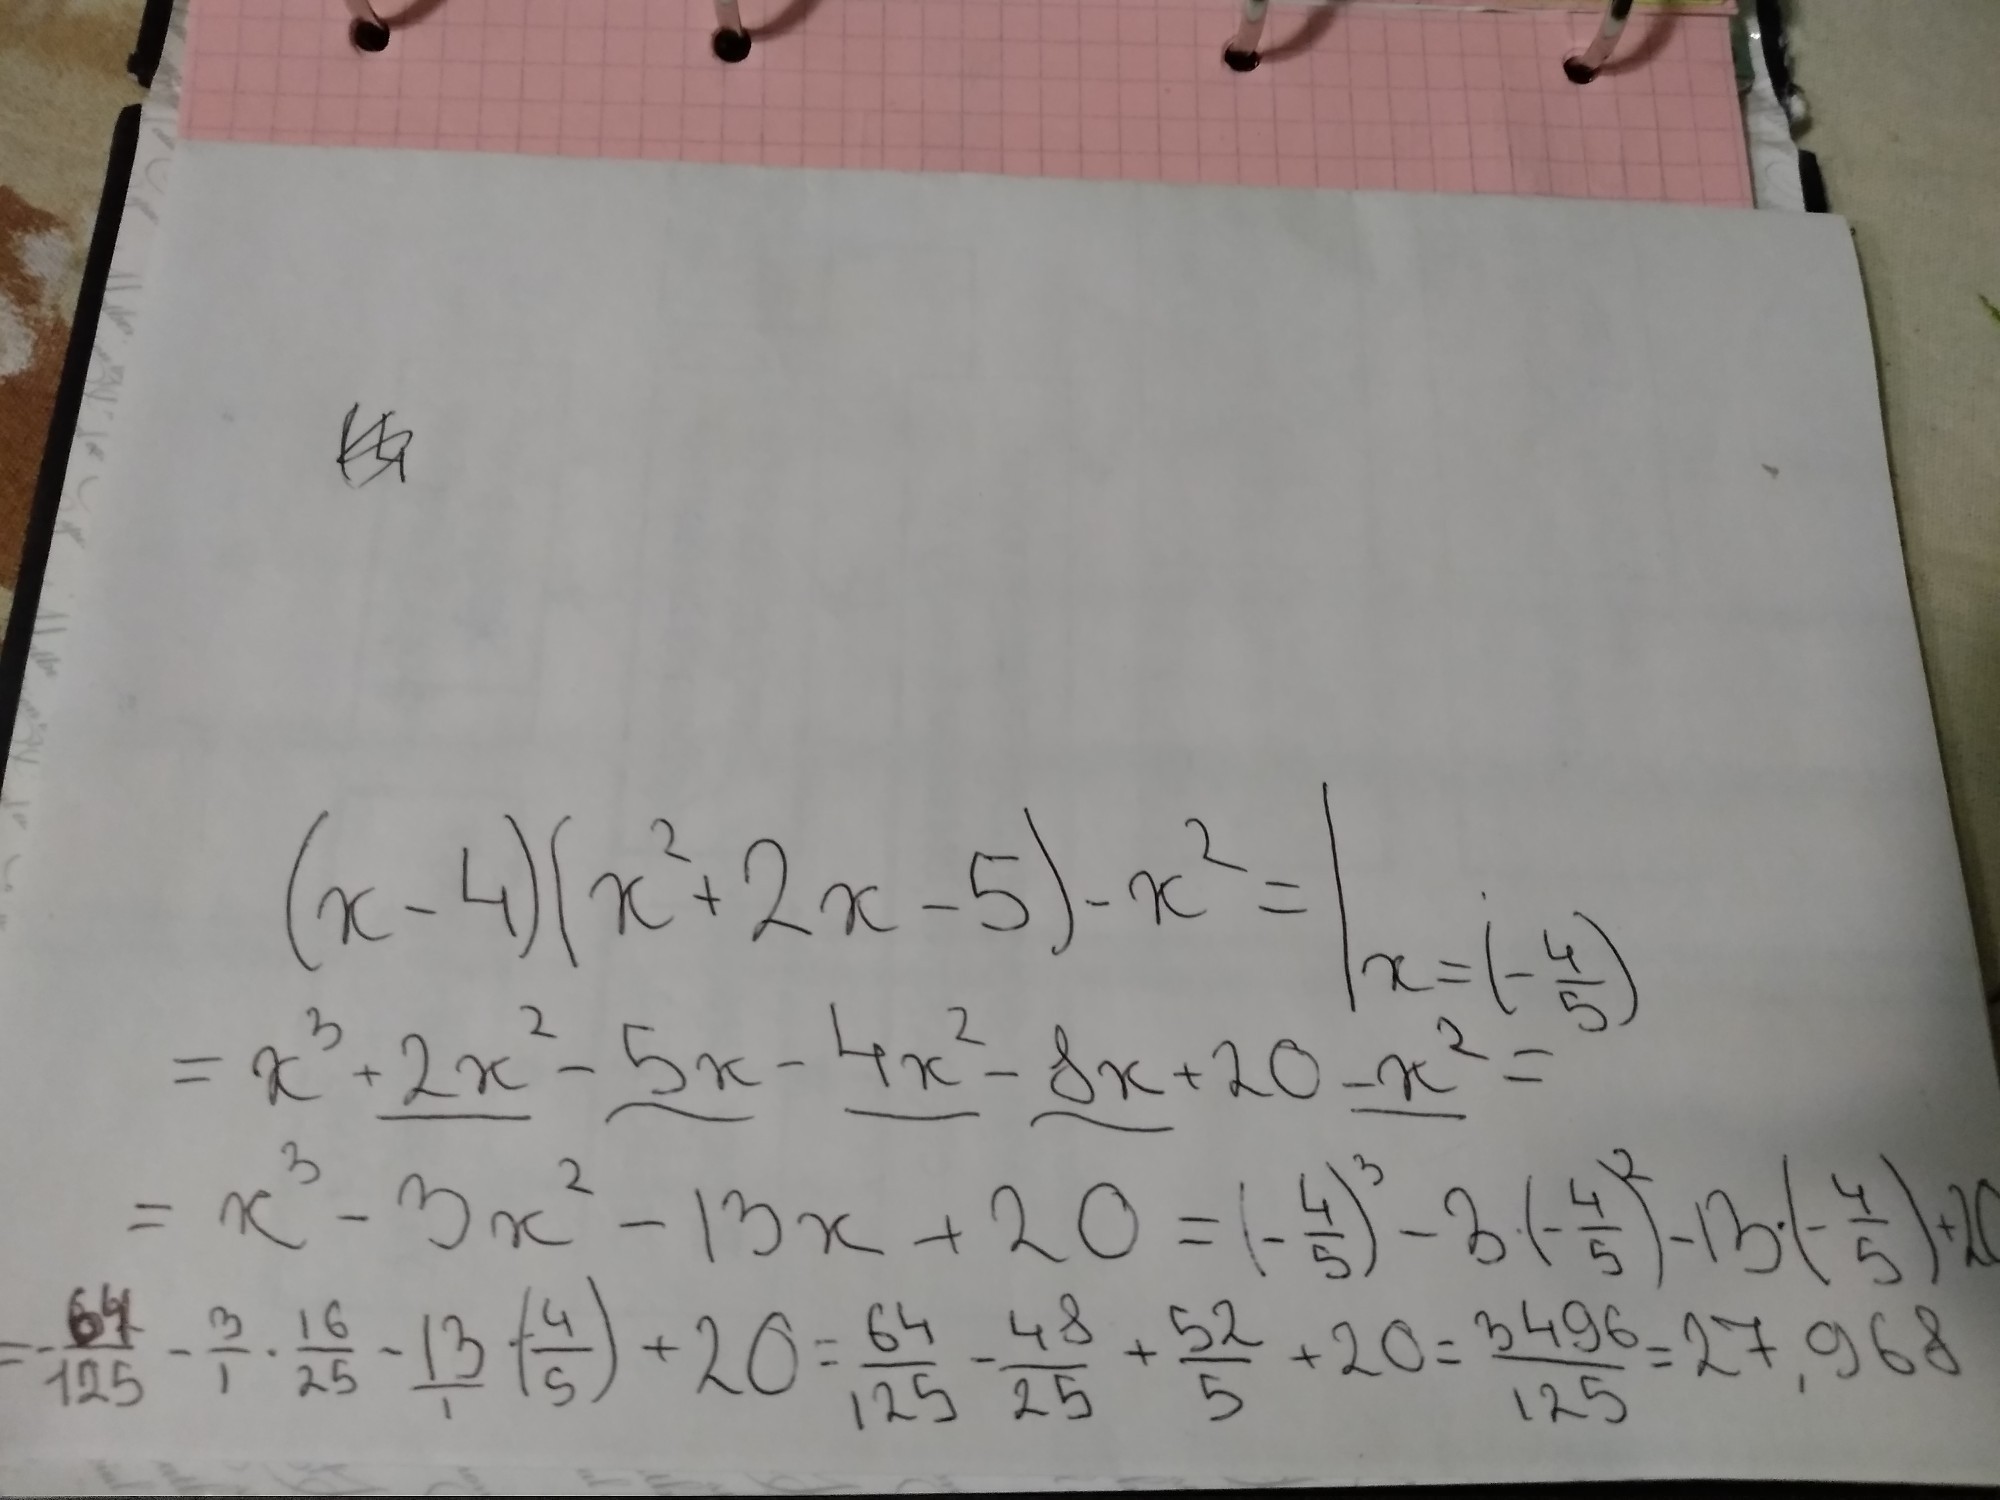 (x-4)(x²+2x-5)-x²= | x=(-4/5)
=x³+2x²-5x-4x²-8x+20-x²=
=x³-3x²-13x+20=(-4/5)³-3·(-4/5)²-13·(-4/5)+20
=-64/125-3/1·16/25-13/1·(-4/5)+20=64/125-48/25+52/5+20=3496/125=27,968